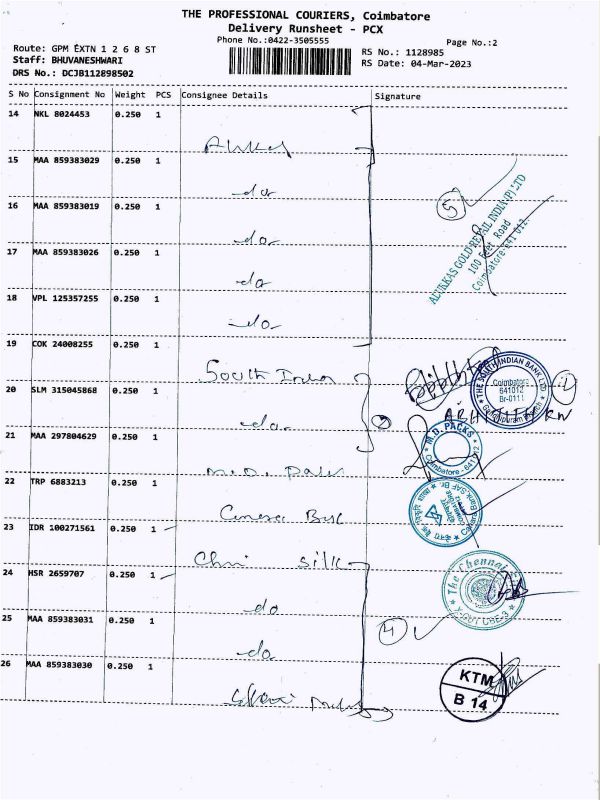 THE PROFESSIONAL COURIERS, Coimbatore
Delivery Runsheet - PCX
Phone No.:0422-3505555
Page No.:2
Route: GPM EXTN 1 2 6 8 ST
Staff: BHUVANESHWARI
DRS No.: DCJB112898502
RS No.: 1128985
RS Date: 04-Mar-2023
S No Consignment No Weight PCS Consignee Details Signature
14 NKL 8024453 0.250 1
15 MAA 859383029 0.250 1
do
16 MAA 859383019 0.250 1
do
17 MAA 859383026 0.250 1
do
18 VPL 125357255 0.250 1
do
5
ALUKKAS GOLD RETAIL INDIA (P) LTD
100 Feet Road
Coimbatore-641 012.
19 COK 24008255 0.250 1
South Indian
THE SOUTH INDIAN BANK LTD
Coimbatore
641012
Br-0111
20 SLM 315045868 0.250 1
do
21 MAA 297804629 0.250 1
M.D. PACKS
Coimbatore - 641 012
22 TRP 6883213 0.250 1
23 IDR 100271561 0.250 1
silk
24 HSR 2659707 0.250 1
do
The Chennai
25 MAA 859383031 0.250 1
do
4
26 MAA 859383030 0.250 1
KTM
B 14